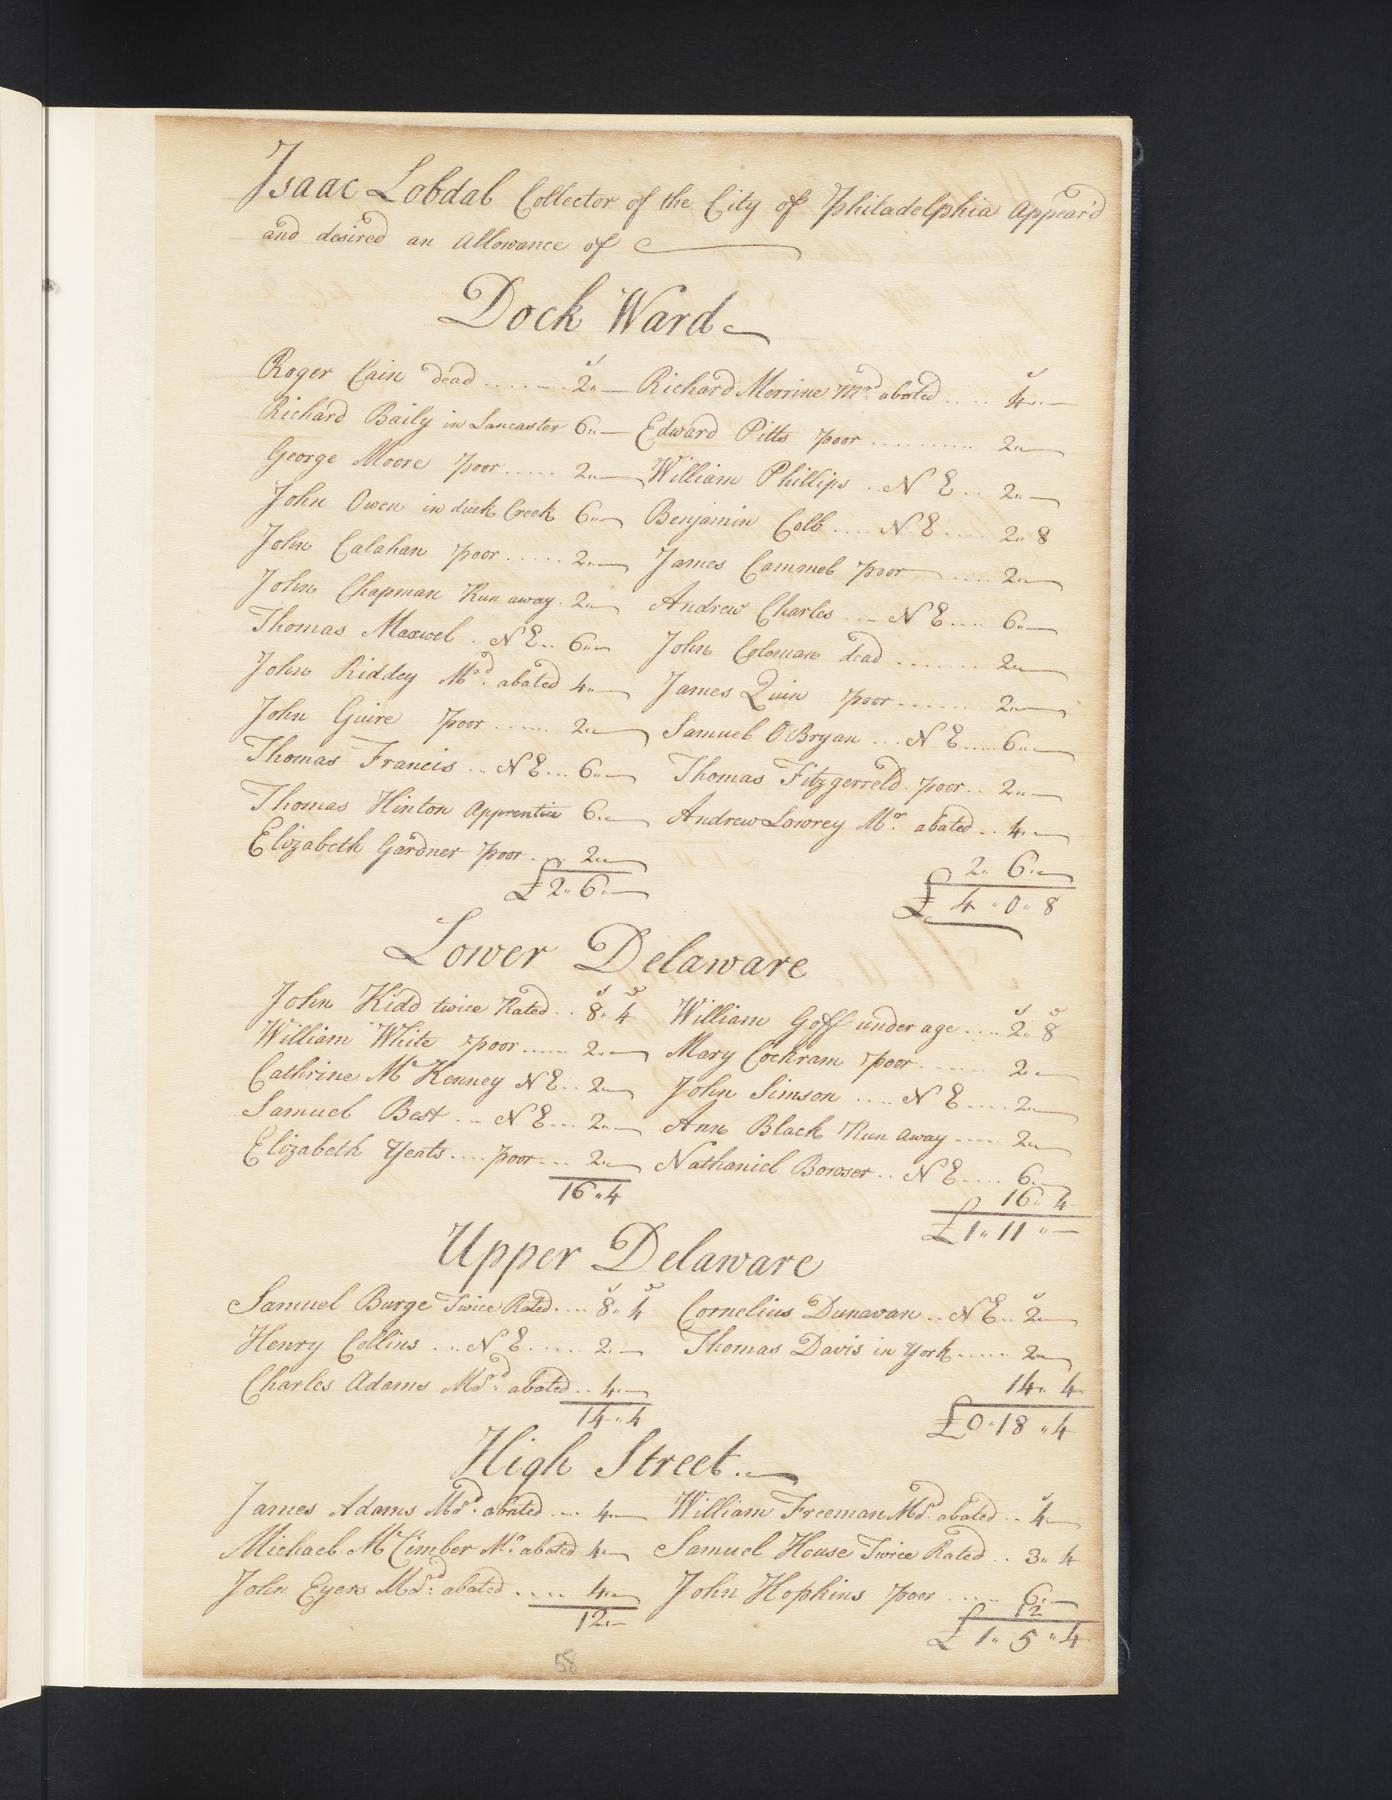 Isaac Lobdal Collector of the City of Philadelphia Appear'd
and desired an Allowance of
Dock Ward
Roger Cain dead ....... 2 „ —
Richard Baily in Lancaster 6 „ —
George Moore poor ..... 2 „ —
John Owen in duck Creek 6 „ —
John Calahan poor ..... 2 „ —
John Chapman Run away . 2 „ —
Thomas Maxwel .. N E .. 6 „ —
John Riddey Mrd. abated 4 „ —
John Guire poor ...... 2 „ —
Thomas Francis .. N E ... 6 „ —
Thomas Hinton Apprentice 6 „ —
Elizabeth Gardner poor ... 2 „ —
£ 2 „ 6 „ —
Richard Merrine Mrd. abated ..... 4 „ —
Edward Pitts poor .......... 2 „ —
William Phillips .. N E ... 2 „ —
Benjamin Colb .... N E .... 2 „ 8
James Cammel poor ..... 2 „ —
Andrew Charles ... N E .... 6 „ —
John Coleman dead ....... 2 „ —
James Quin poor ....... 2 „ —
Samuel O Bryan ... N E .... 6 „ —
Thomas Fitzgerreld poor .. 2 „ —
Andrew Lowrey Mr. abated .. 4 „ —
2 „ 6 „ —
£ 4 „ 0 „ 8
Lower Delaware
John Kidd twice Rated .. 8 „ 4
William White poor ..... 2 „ —
Cathrine Mc Kenney N E .. 2 „ —
Samuel Best ... N E ... 2 „ —
Elizabeth Yeats .... poor ... 2 „ —
16 „ 4
William Goff under age .... 2 „ 8
Mary Cochram poor ....... 2 „ —
John Simson .... N E .... 2 „ —
Ann Black Run away ..... 2 „ —
Nathaniel Bowser .. N E .... 6 „ —
16 „ 4
£ 1 „ 11 „ —
Upper Delaware
Samuel Burge Twice Rated .... 8 „ 4
Henry Collins ... N E ..... 2 „ —
Charles Adams Mrd. abated .. 4 „ —
14 „ 4
Cornelius Dunavan .. N E .. 2 „ —
Thomas Davis in York ..... 2 „ —
14 „ 4
£ 0 „ 18 „ 4
High Street
James Adams Mrd. abated ... 4 „ —
Michael Mc Cimber Mr. abated 4 „ —
John Eyers Mrd. abated .... 4 „ —
12 „ —
William Freeman Mrd. abated .. 4 „ —
Samuel House Twice Rated .. 3 „ 4
John Hopkins poor ..... 6 „ —
12
£ 1 „ 5 „ 4
58